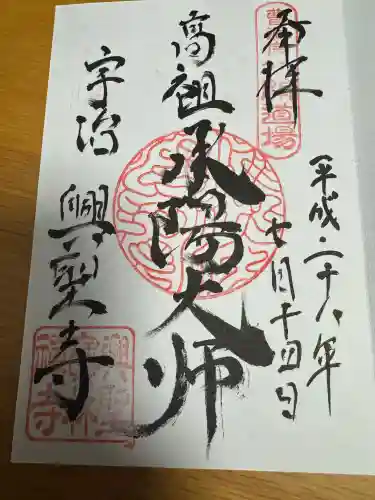 奉拝
平成二十八年
七月十四日
高祖承陽大师
宇治
興聖寺